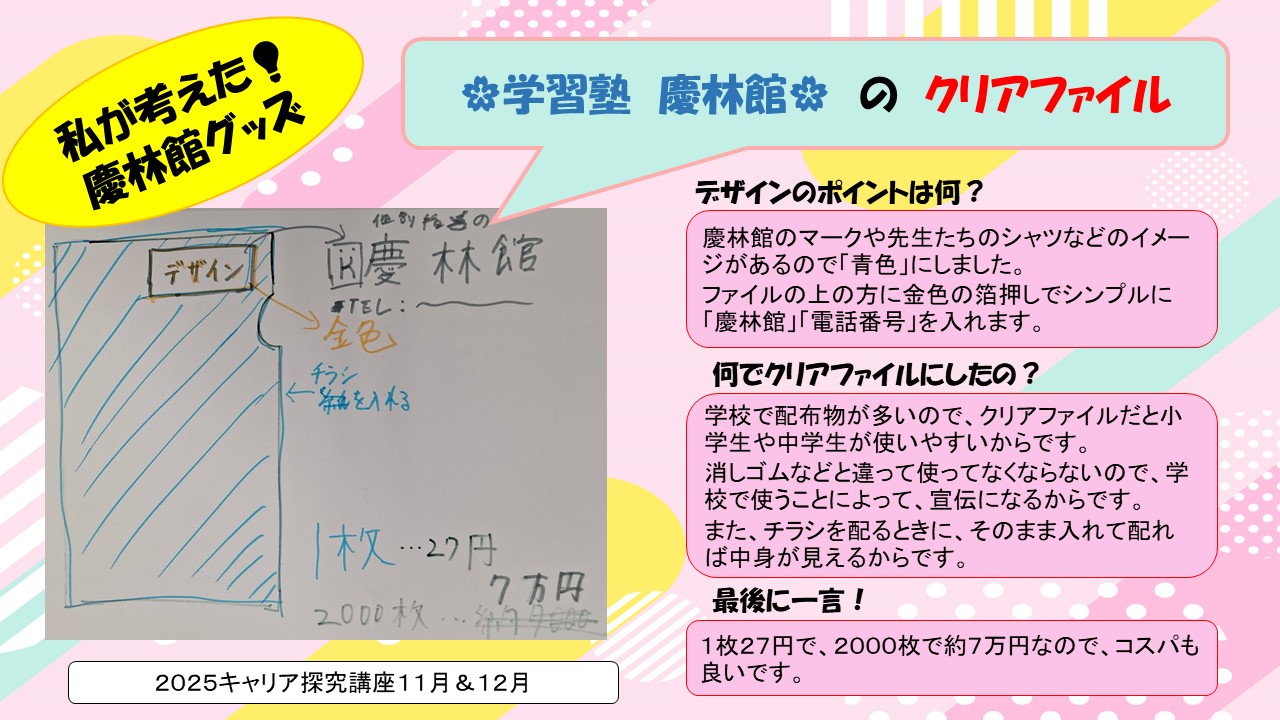 私が考えた!
慶林館グッズ
学習塾 慶林館 の クリアファイル
個別指導の
K 慶林館
TEL:
デザイン
金色
チラシ
を入れる
1枚…27円
7万円
2000枚…
2025キャリア探究講座11月&12月
デザインのポイントは何?
慶林館のマークや先生たちのシャツなどのイメー
ジがあるので「青色」にしました。
ファイルの上の方に金色の箔押しでシンプルに
「慶林館」「電話番号」を入れます。
何でクリアファイルにしたの?
学校で配布物が多いので、クリアファイルだと小
学生や中学生が使いやすいからです。
消しゴムなどと違って使ってなくならないので、学
校で使うことによって、宣伝になるからです。
また、チラシを配るときに、そのまま入れて配れ
ば中身が見えるからです。
最後に一言!
1枚27円で、2000枚で約7万円なので、コスパも
良いです。